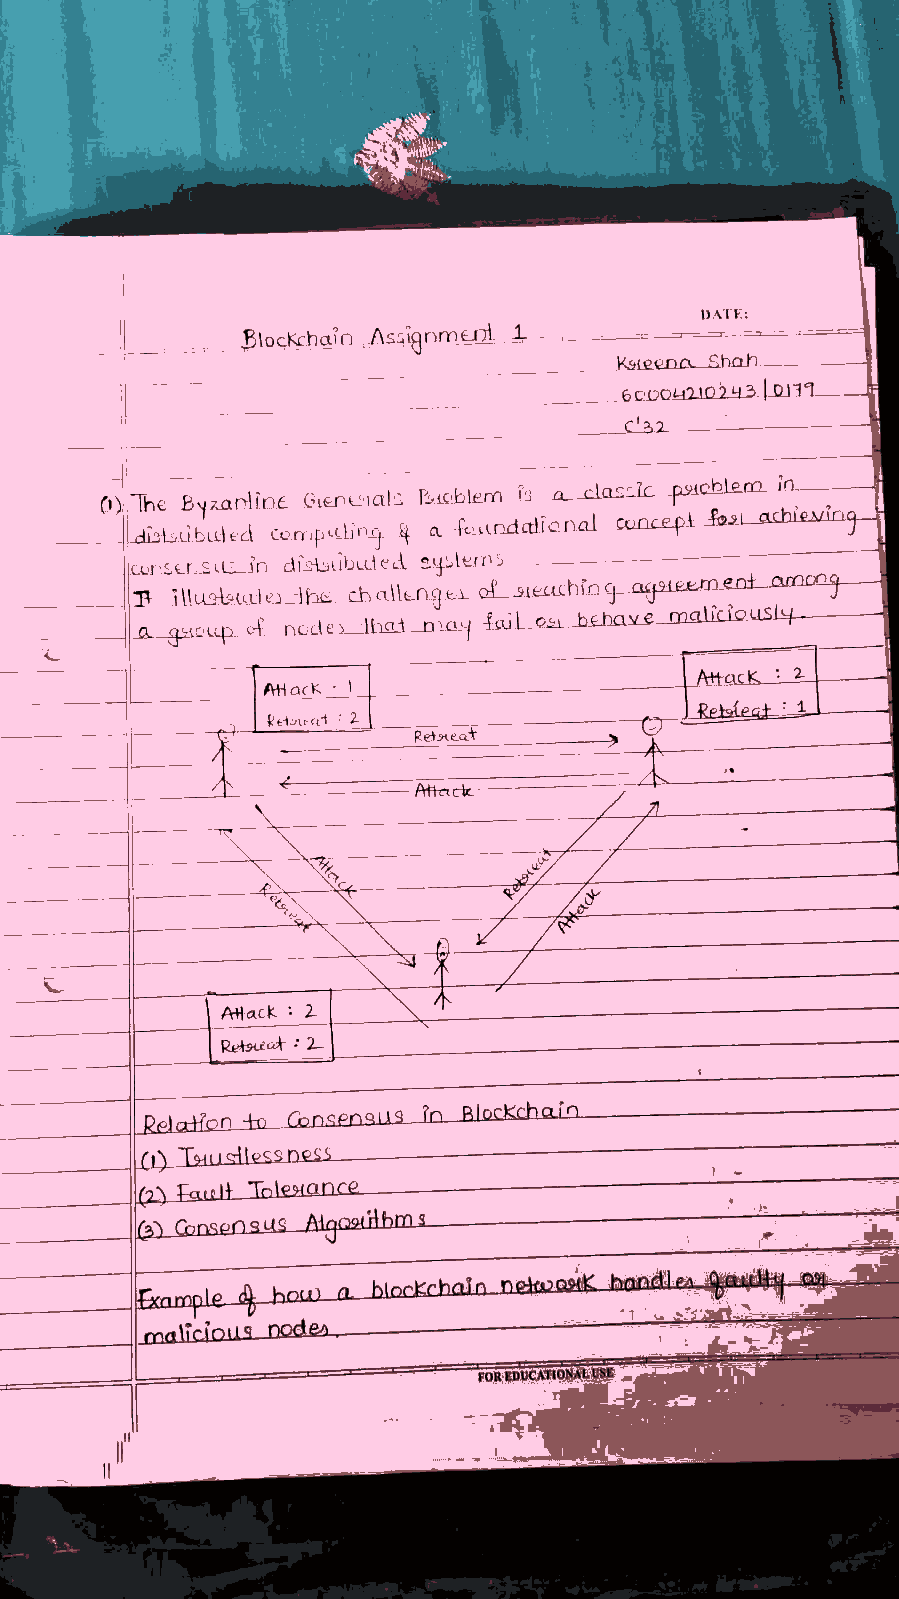 DATE:
Blockchain Assignment 1
Kreena Shah
60004210243/0179
C'32
(1) The Byzantine Generals Problem is a classic problem in
distributed computing & a foundational concept for achieving
consensus in distributed systems
It illustrates the challenges of reaching agreement among
a group of nodes that may fail or behave maliciously.
Attack : 1
Retreat : 2
Attack : 2
Retreat : 1
Retreat
Attack
Attack
Retreat
Retreat
Attack
Attack : 2
Retreat : 2
Relation to Consensus in Blockchain
(1) Trustlessness
(2) Fault Tolerance
(3) Consensus Algorithms
Example of how a blockchain network handles faulty or
malicious nodes.
FOR EDUCATIONAL USE